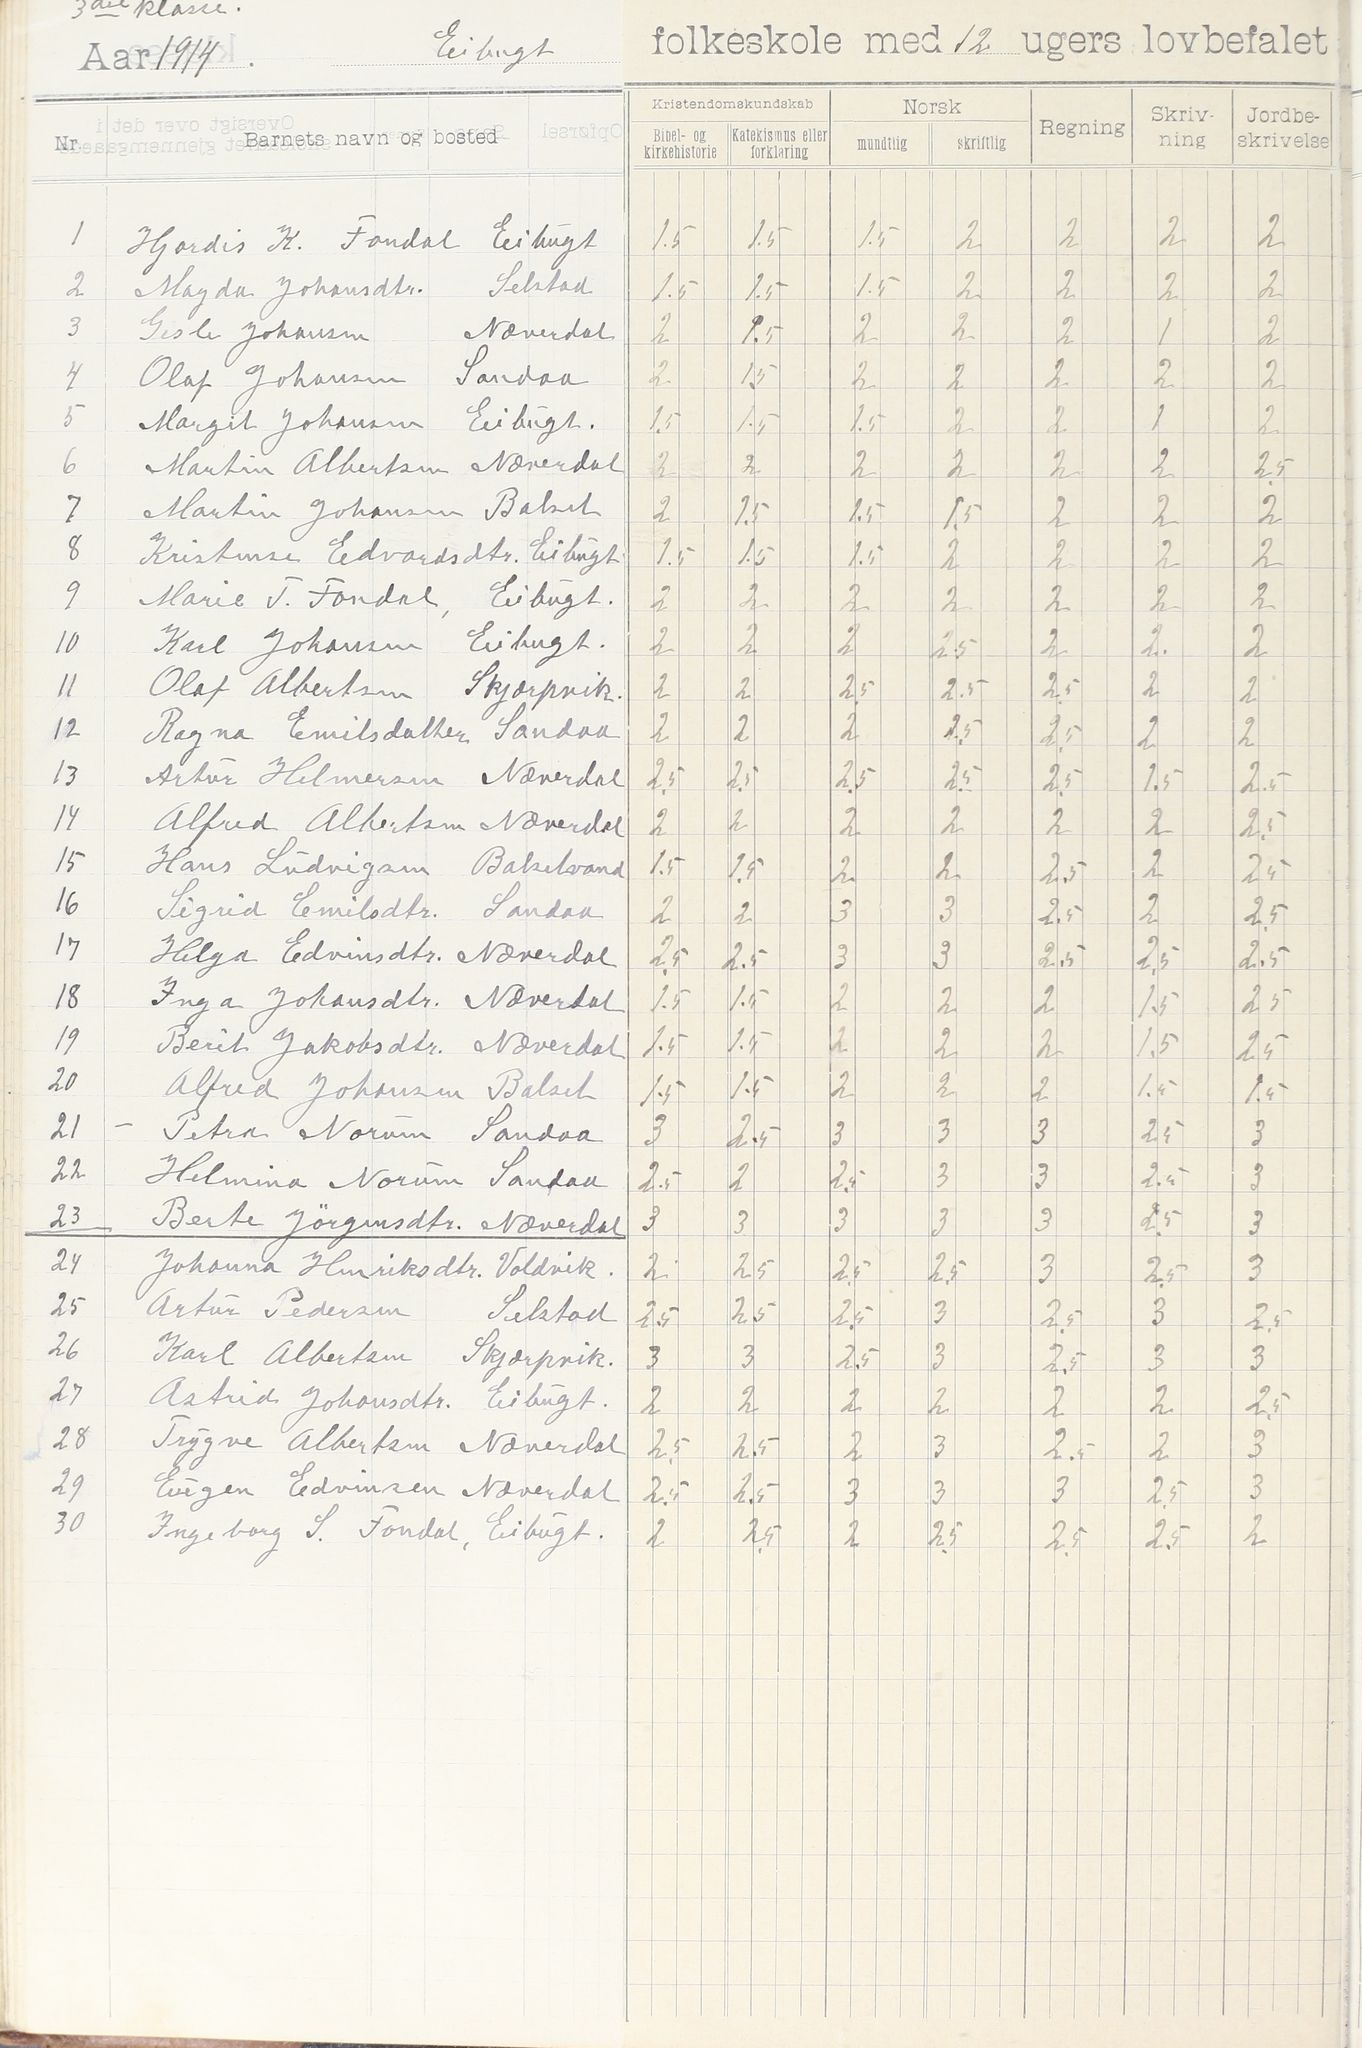 3die klasse.
Aar 1914. Eibugt folkeskole med 12 ugers lovbefalet
Nr. Barnets navn og bosted Kristendomskundskab Norsk Regning Skriv-ning Jordbe-skrivelse
Bibel- og kirkehistorie Katekismus eller forklaring mundtlig skriftlig
1 Hjordis K. Fondal Eibugt 1.5 1.5 1.5 2 2 2 2
2 Magda Johansdtr. Selstad 1.5 1.5 1.5 2 2 2 2
3 Gisle Johansen Næverdal 2 1.5 2 2 2 1 2
4 Olaf Johansen Sandaa 2 1.5 2 2 2 2 2
5 Margit Johansen Eibugt. 1.5 1.5 1.5 2 2 1 2
6 Martin Albertsen Næverdal 2 2 2 2 2 2 2.5
7 Martin Johansen Balset 2 1.5 1.5 1.5 2 2 2
8 Kristense Edvardsdtr. Eibugt 1.5 1.5 1.5 2 2 2 2
9 Marie T. Fondal, Eibugt. 2 2 2 2 2 2 2
10 Karl Johansen Eibugt. 2 2 2 2.5 2 2. 2
11 Olaf Albertsen Skjærpvik. 2 2 2.5 2.5 2.5 2 2
12 Ragna Emilsdatter Sandaa 2 2 2 2.5 2.5 2 2
13 Artur Helmersen Næverdal 2.5 2.5 2.5 2.5 2.5 1.5 2.5
14 Alfred Albertsen Næverdal 2 2 2 2 2 2 2.5
15 Hans Ludvigsen Balsetvand 1.5 1.5 2 2 2.5 2 2.5
16 Sigrid Emilsdtr. Sandaa 2 2 3 3 2.5 2 2.5
17 Helga Edvinsdtr. Næverdal 2.5 2.5 3 3 2.5 2.5 2.5
18 Inga Johansdtr. Næverdal 1.5 1.5 2 2 2 1.5 2.5
19 Berit Jakobsdtr. Næverdal 1.5 1.5 2 2 2 1.5 2.5
20 Alfred Johansen Balset 1.5 1.5 2 2 2 1.5 1.5
21 - Petra Norum Sandaa 3 2.5 3 3 3 2.5 3
22 Helmina Norum Sandaa 2.5 2 2.5 3 3 2.5 3
23 Berte Jörgensdtr. Næverdal 3 3 3 3 3 2.5 3
24 Johanna Henriksdtr. Voldvik. 2 2.5 2.5 2.5 3 2.5 3
25 Artur Pedersen Selstad 2.5 2.5 2.5 3 2.5 3 2.5
26 Karl Albertsen Skjærpvik. 3 3 2.5 3 2.5 3 3
27 Astrid Johansdtr. Eibugt. 2 2 2 2 2 2 2.5
28 Trygve Albertsen Næverdal 2.5 2.5 2 3 2.5 2 3
29 Eugen Edvinsen Næverdal 2.5 2.5 3 3 3 2.5 3
30 Ingeborg S. Fondal, Eibugt. 2 2.5 2 2.5 2.5 2.5 2